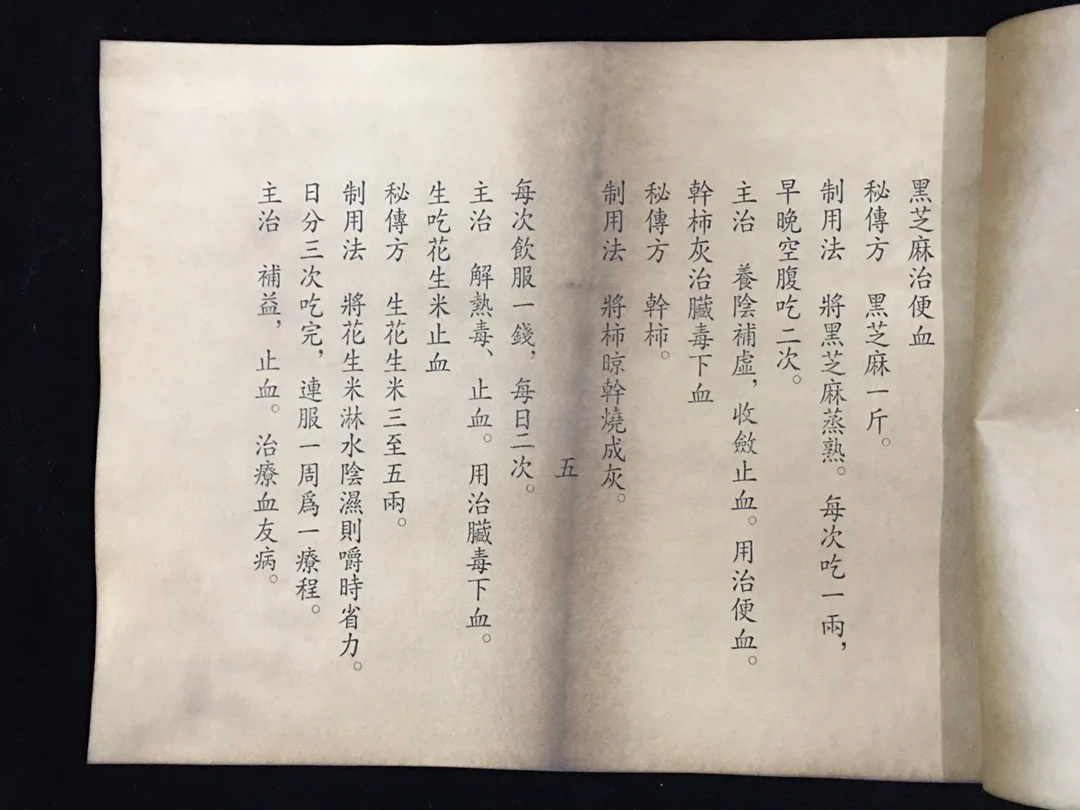 黑芝麻治便血
秘傳方　黑芝麻一斤。
制用法　將黑芝麻蒸熟。每次吃一兩，
早晚空腹吃二次。
主治　養陰補虛，收斂止血。用治便血。
幹柿灰治臟毒下血
秘傳方　幹柿。
制用法　將柿晾幹燒成灰。
五
每次飲服一錢，每日二次。
主治　解熱毒、止血。用治臟毒下血。
生吃花生米止血
秘傳方　生花生米三至五兩。
制用法　將花生米淋水陰濕則嚼時省力。
日分三次吃完，連服一周爲一療程。
主治　補益，止血。治療血友病。